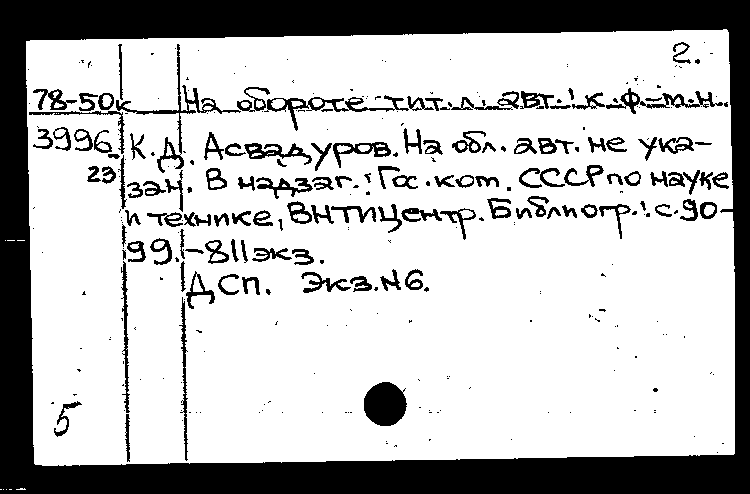 2.
78-50к На обороте тит. л. авт.: к.ф.-м.н.
3996 К.Д. Асвадуров. На обл. авт. не ука-
23 зан. В надзаг.: Гос. ком. СССР по науке
и технике, ВНТИЦентр. Библиогр.: с. 90-
99. - 811 экз.
ДСП. Экз. №6.
5